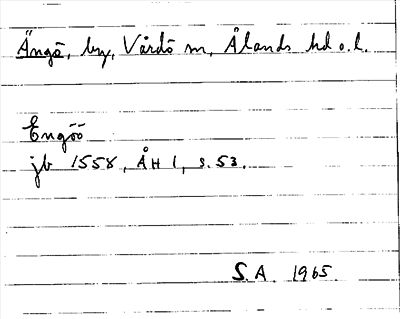 Ängö, by, Vårdö sn, Ålands hd o. l.
Engöö
jb 1558, ÅH 1, s. 53.
S.A. 1965.